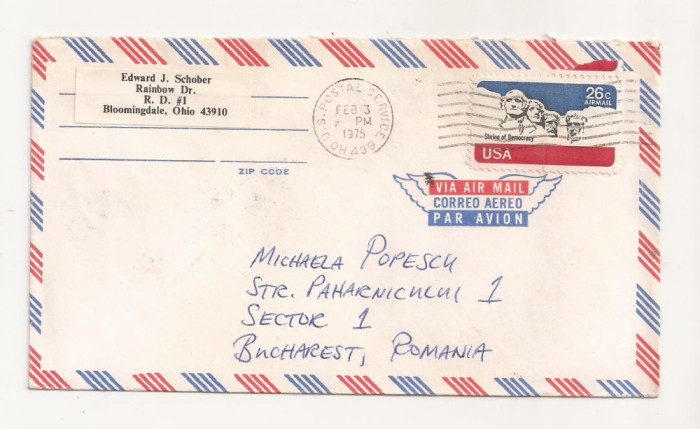 Edward J. Schober
Rainbow Dr.
R. D. #1
Bloomingdale, Ohio 43910
ZIP CODE
U.S. POSTAL SERVICE
FEB 13
PM
1975
OH 439
26c
AIRMAIL
Shrine of Democracy
USA
VIA AIR MAIL
CORREO AEREO
PAR AVION
MICHAELA POPESCU
STR. PAHARNICULUI 1
SECTOR 1
BUCHAREST, ROMANIA